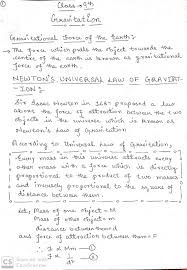 ①
Class → 9th
Gravitation
Gravitational Force of the Earth:
→ The force which pulls the object towards the
centre of the earth is known as gravitational
force of the earth.
NEWTON'S UNIVERSAL LAW OF GRAVITAT-
-ION:
→ Sir Isaac Newton in 1687 proposed a law
about the force of attraction between the two
objects in the universe which is known as
Newton's Law of Gravitation
According to Universal Law of Gravitation,
Every mass in this universe attracts every
other mass with a force which is directly
proportional to the product of two masses
and inversely proportional to the square of
distance between them.
Let, Mass of one object = M
Mass of other object = m
Distance between them = d
and force of attraction between them = F
∴ F ∝ Mm — ①
F ∝ — ②
CS